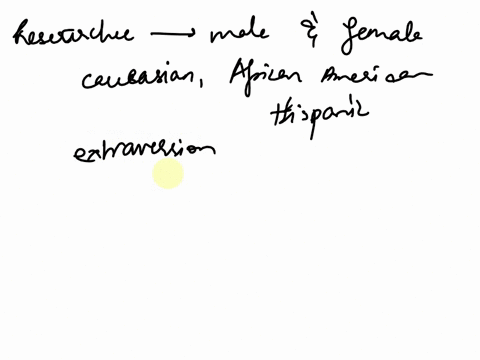 Researcher → male & female
caucasian, African American
Hispanic
extraversion